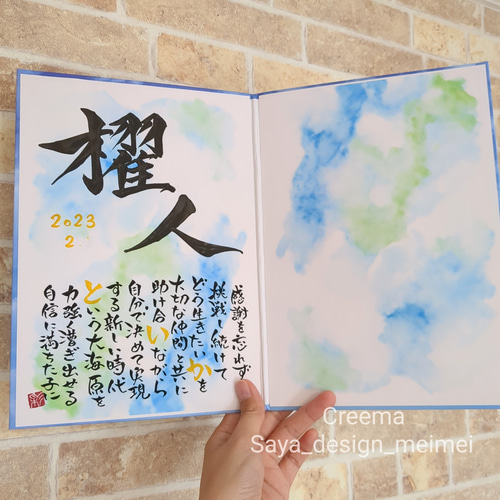 櫂人
2023
2
感謝を忘れず
挑戦し続けて
どう生きたいかを
大切な仲間と共に
助け合いながら
自分で決めて実現
する新しい時代
という大海原を
力強く漕ぎ出せる
自信に満ちた子に
Creema
Saya_design_meimei